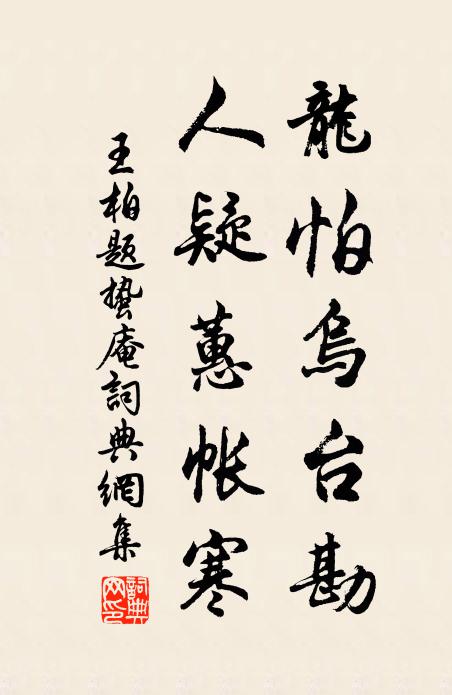 龍怕烏台勘
人疑蕙帳寒
王柏題蟄庵詞典網集
詞典网印